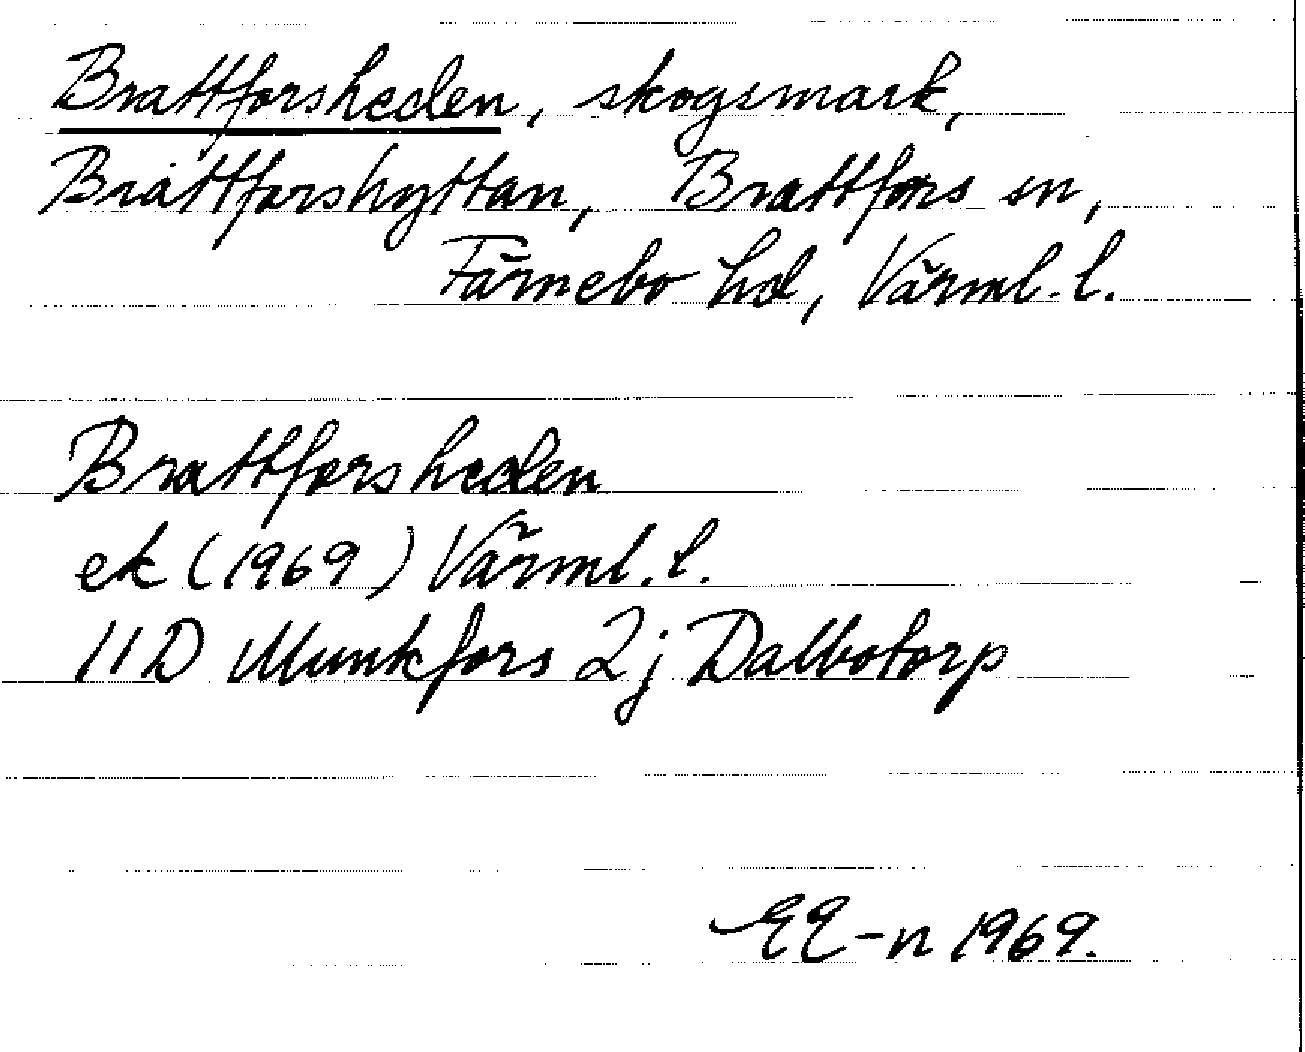 Brattforsheden, skogsmark,
Brattforshyttan, Brattfors sn,
Färnebo hd, Värml. l.
Brattforsheden
ek (1969) Värml. l.
11D Munkfors 2j Dalbotorp
EE-n 1969.